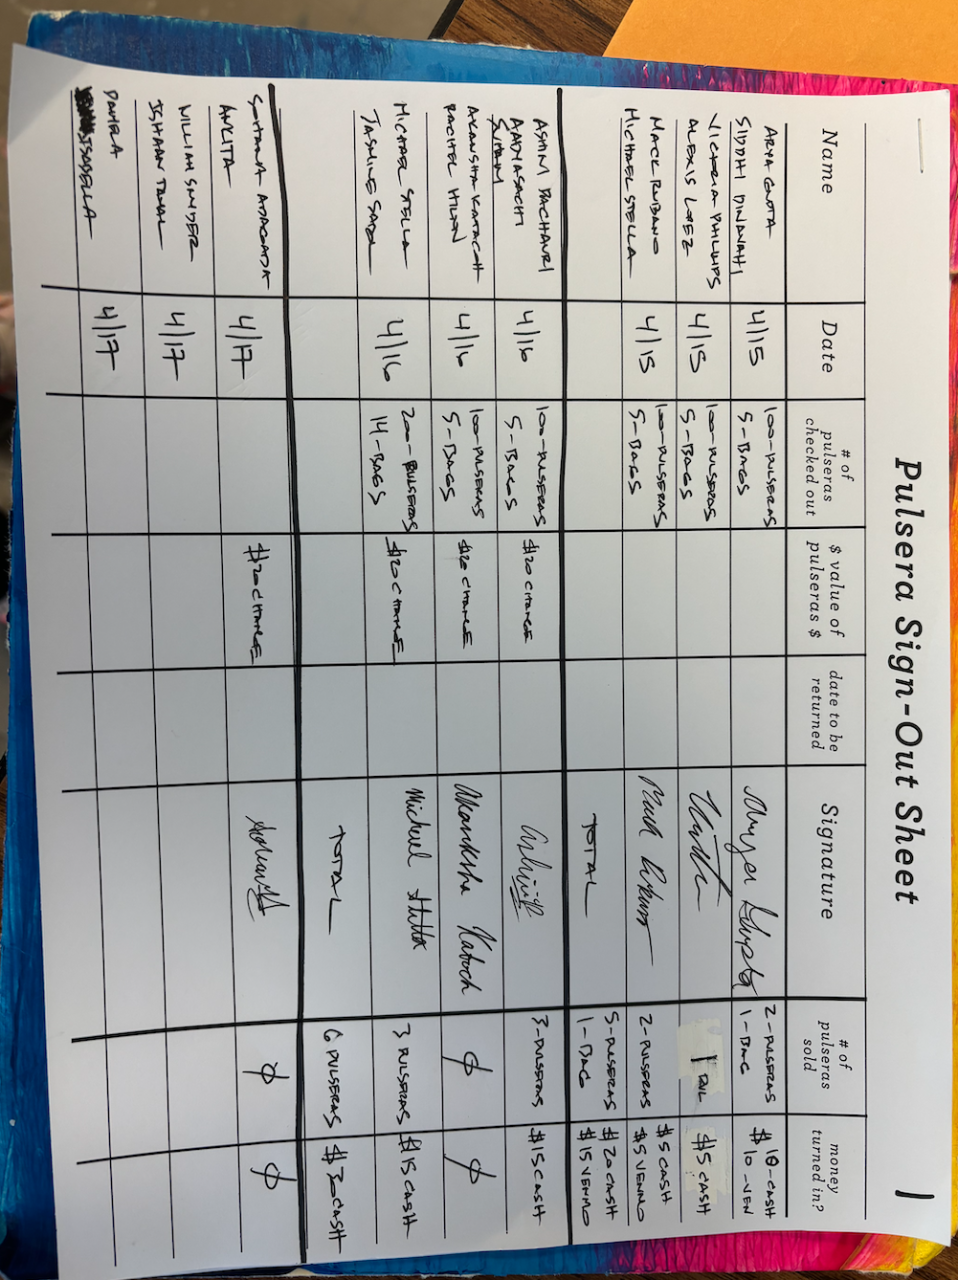 Pulsera Sign-Out Sheet
1
Name
Date
# of
pulseras
checked out
$ value of
pulseras $
date to be
returned
Signature
# of
pulseras
sold
money
turned in?
ARYA GUPTA
SIDDHI DINAVAHI
4/15
100-PULSERAS
5-BAGS
Arya Gupta
2-PULSERAS
1-BAG
$10-CASH
$10-VEN
VICTORIA PHILLIPS
ALEXIS LOPEZ
4/15
100-PULSERAS
5-BAGS
1 PUL
$5 CASH
MACK RUBANO
MICHAEL STELLA
4/15
100-PULSERAS
5-BAGS
2-PULSERAS
$5 CASH
$5 VENMO
TOTAL
5-PULSERAS
1-BAG
$20 CASH
$15 VENMO
ASHNI PACHAURI
AADYASACHI
4/16
100-PULSERAS
5-BAGS
$20 CHANGE
3-PULSERAS
$15 CASH
AKANSHA KATOCH
RACHEL HILTON
4/16
100-PULSERAS
5-BAGS
$20 CHANGE
Akanksha Katoch
Ø
Ø
MICHAEL STELLA
JASMINE
4/16
200-PULSERAS
14-BAGS
$20 CHANGE
Michael Stella
3 PULSERAS
$15 CASH
TOTAL
6 PULSERAS
$30 CASH
ANKITA
4/17
$20 CHANGE
Ø
Ø
WILLIAM SNYDER
ISHAAN
4/17
DANIELA
ISABELLA
4/17